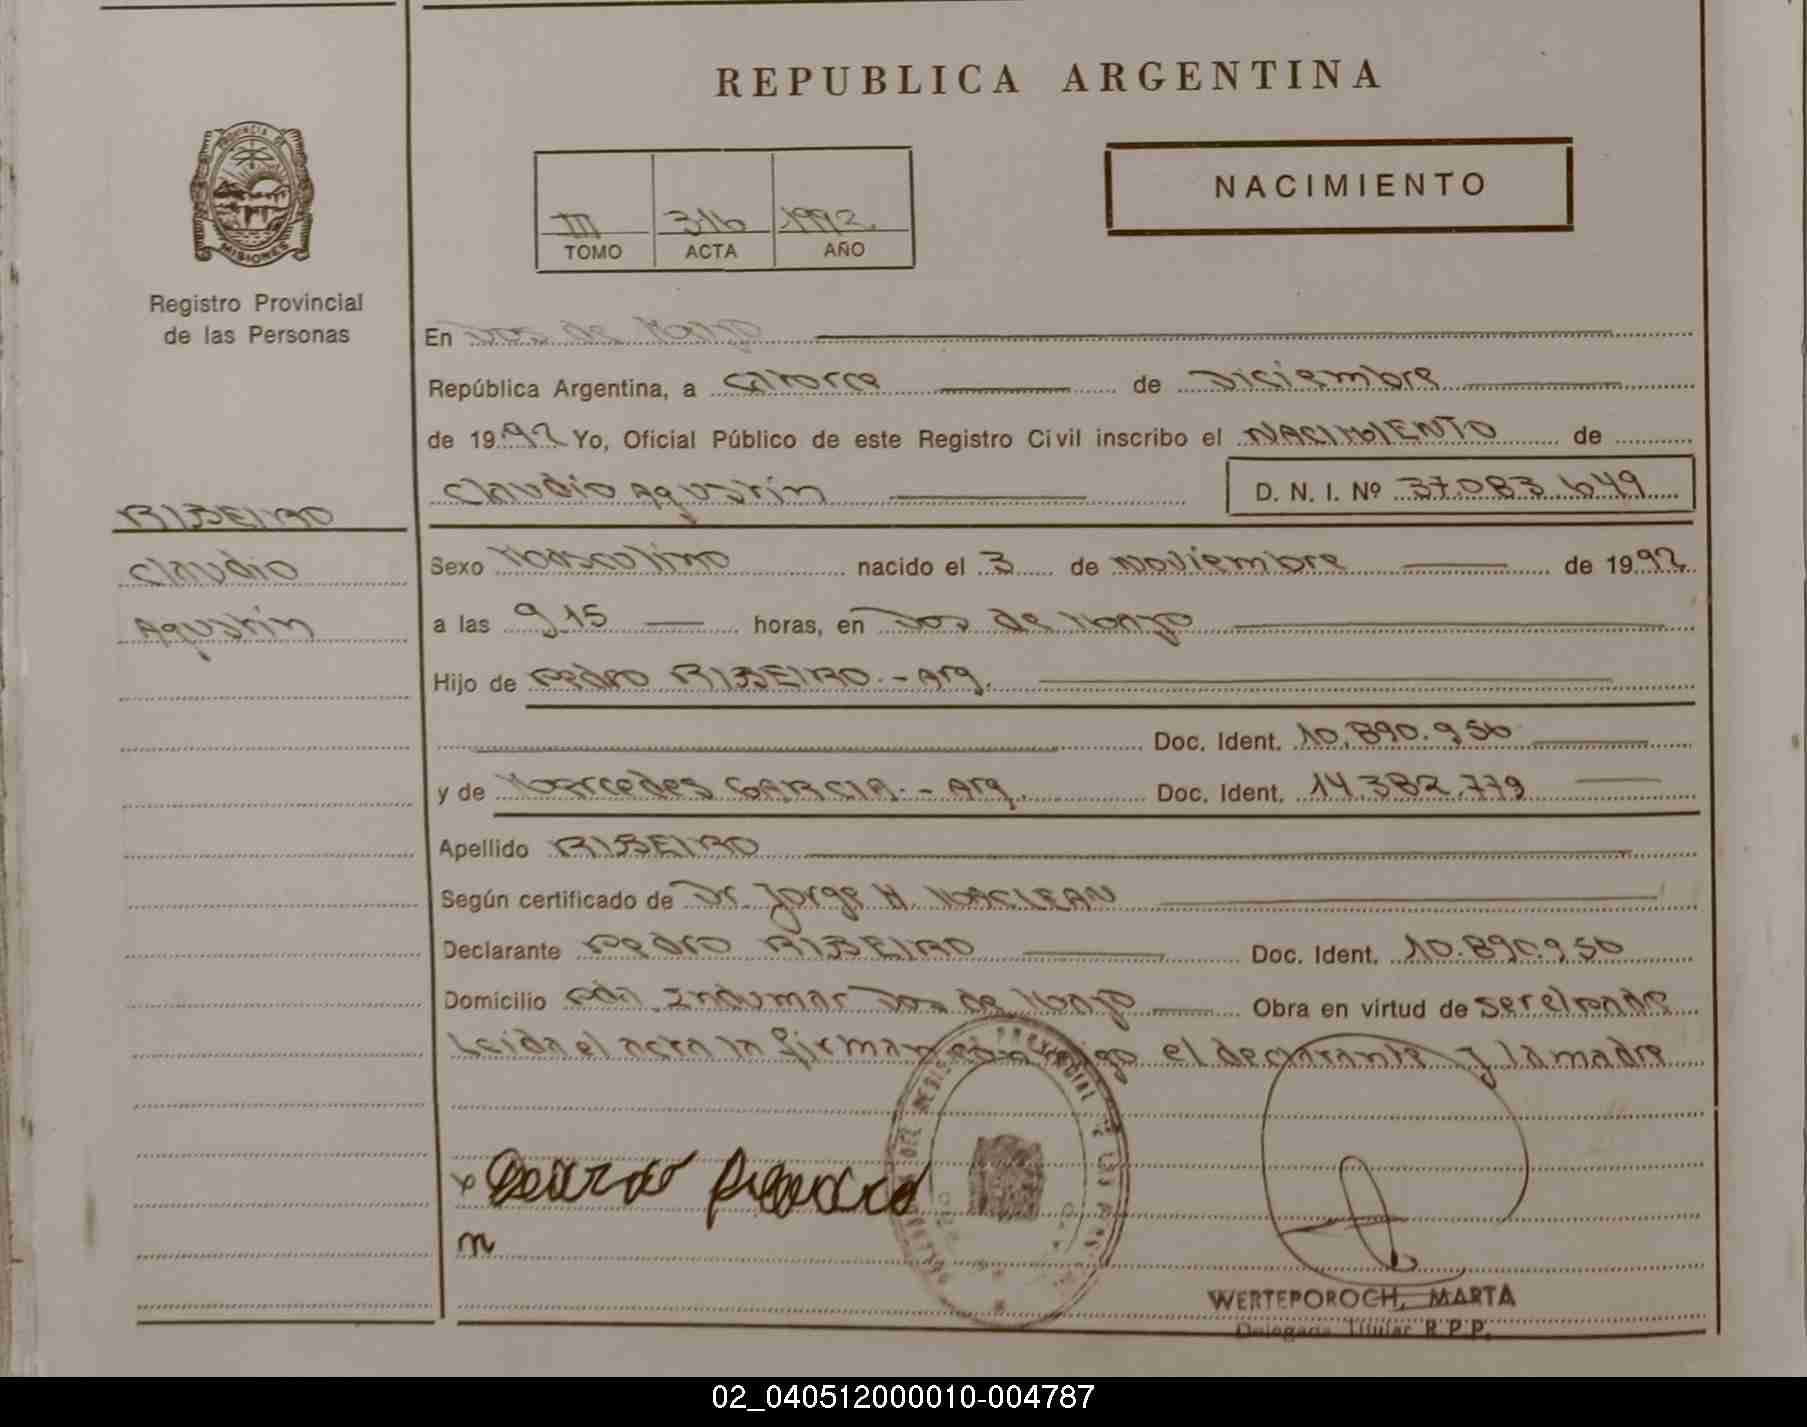 REPUBLICA ARGENTINA
PROVINCIA DE
MISIONES
Registro Provincial
de las Personas
NACIMIENTO
III 316 1992
TOMO ACTA AÑO
En Dos de Mayo
República Argentina, a catorce de Diciembre
de 1992 Yo, Oficial Público de este Registro Civil inscribo el NACIMIENTO de
Claudio Agustín D. N. I. Nº 37.083.649
RIBEIRO
Claudio
Agustín
Sexo Masculino nacido el 3 de Noviembre de 1992
a las 9,15 horas, en Dos de Mayo
Hijo de Pedro RIBEIRO.- Arg.
Doc. Ident. 10.890.956
y de Mercedes GARCIA.- Arg. Doc. Ident. 14.382.779
Apellido RIBEIRO
Según certificado de Dr. Jorge H. MACLEAN
Declarante Pedro RIBEIRO Doc. Ident. 10.890.956
Domicilio Dos de Mayo Obra en virtud de ser el padre
Leida el acta la firman conmigo el declarante y la madre
WERTEPOROCH, MARTA
Delegada Titular R.P.P.
02_040512000010-004787